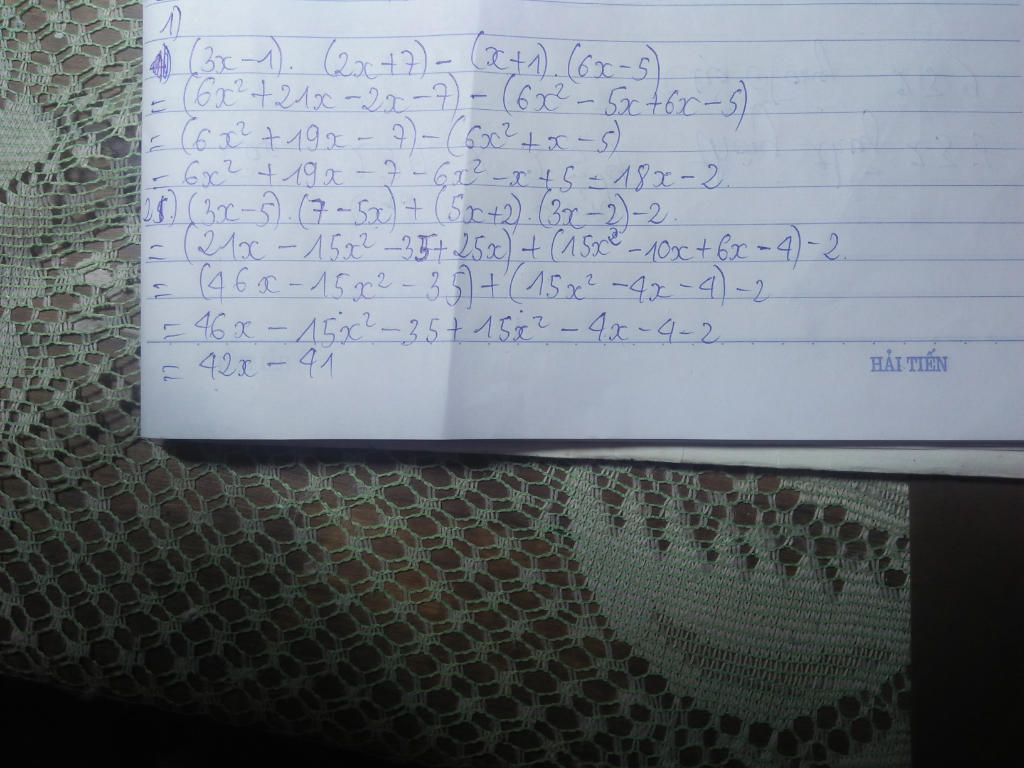 1)
(3x-1). (2x+7) - (x+1).(6x-5)
= (6x² + 21x - 2x - 7) - (6x² - 5x + 6x - 5)
= (6x² + 19x - 7) - (6x² + x - 5)
= 6x² + 19x - 7 - 6x² - x + 5 = 18x - 2.
(3x-5).(7-5x) + (5x+2).(3x-2)-2.
= (21x - 15x² - 35 + 25x) + (15x² - 10x + 6x - 4) - 2.
= (46x - 15x² - 35) + (15x² - 4x - 4) - 2
= 46x - 15x² - 35 + 15x² - 4x - 4 - 2
= 42x - 41
HẢI TIẾN